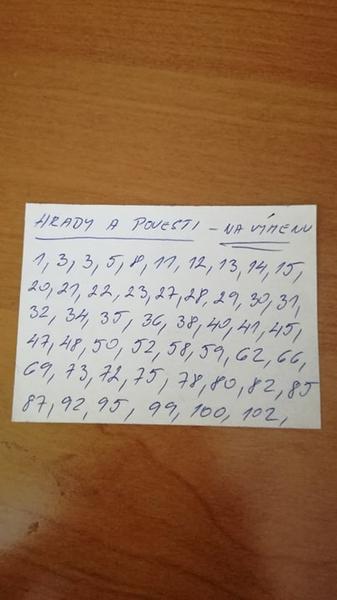 HRADY A POVESTI - NA VÝMENU
1, 3, 3, 5, 8, 11, 12, 13, 14, 15,
20, 21, 22, 23, 27, 28, 29, 30, 31,
32, 34, 35, 36, 38, 40, 41, 45,
47, 48, 50, 52, 58, 59, 62, 66,
69, 73, 72, 75, 78, 80, 82, 85
87, 92, 95, 99, 100, 102,